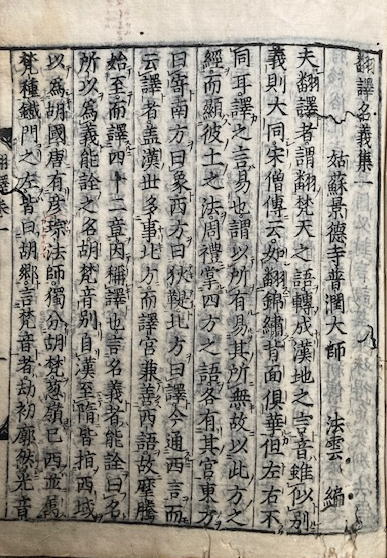 翻譯名義集一
姑蘇景德寺普潤大師 法雲 編
夫翻譯者謂翻梵天之語轉成漢地之言音雖似別
義則大同宋僧傳云如翻錦繡背面俱華但左右不
同耳譯之言易也謂以所有易其所無故以此方之
經而顯彼土之法周禮掌四方之語各有其官東方
曰寄南方曰象西方曰狄鞮北方曰譯今通西言而
云譯者蓋漢世多事北方而譯官兼善西語故摩騰
始至而譯四十二章因稱譯也言名義者能詮曰名
所以為義能詮之名胡梵音別自漢至隋皆指西域
以為胡國唐有彥琮法師獨分胡梵葱嶺已西並屬
梵種鐵門之左皆曰胡鄉言梵音者劫初廓然光音